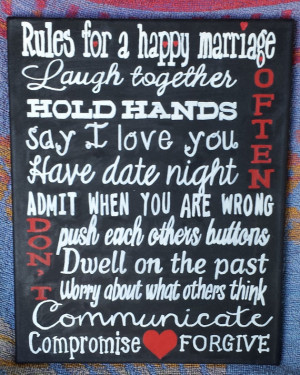 Rules for a happy marriage
Laugh together
HOLD HANDS
Say I love you
Have date night
OFTEN
ADMIT WHEN YOU ARE WRONG
DON'T
push each others buttons
Dwell on the past
Worry about what others think
Communicate
Compromise FORGIVE